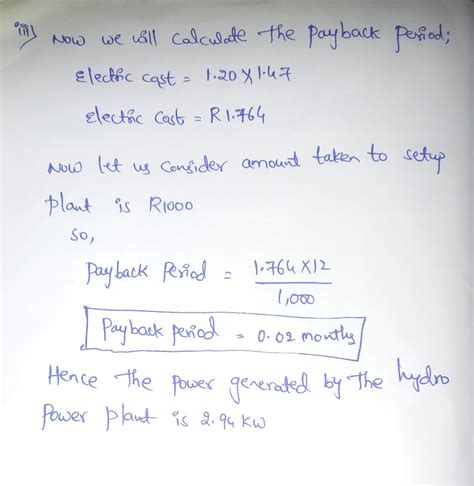 iii) Now we will calculate the payback period;
Electric cost = 1.20 X 1.47
Electric Cost = R1.764
Now let us consider amount taken to setup
plant is R1000
So,
Payback Period = 1.764 X12
1,000
Payback period = 0.02 months
Hence the power generated by the hydro
Power plant is 2.94 KW